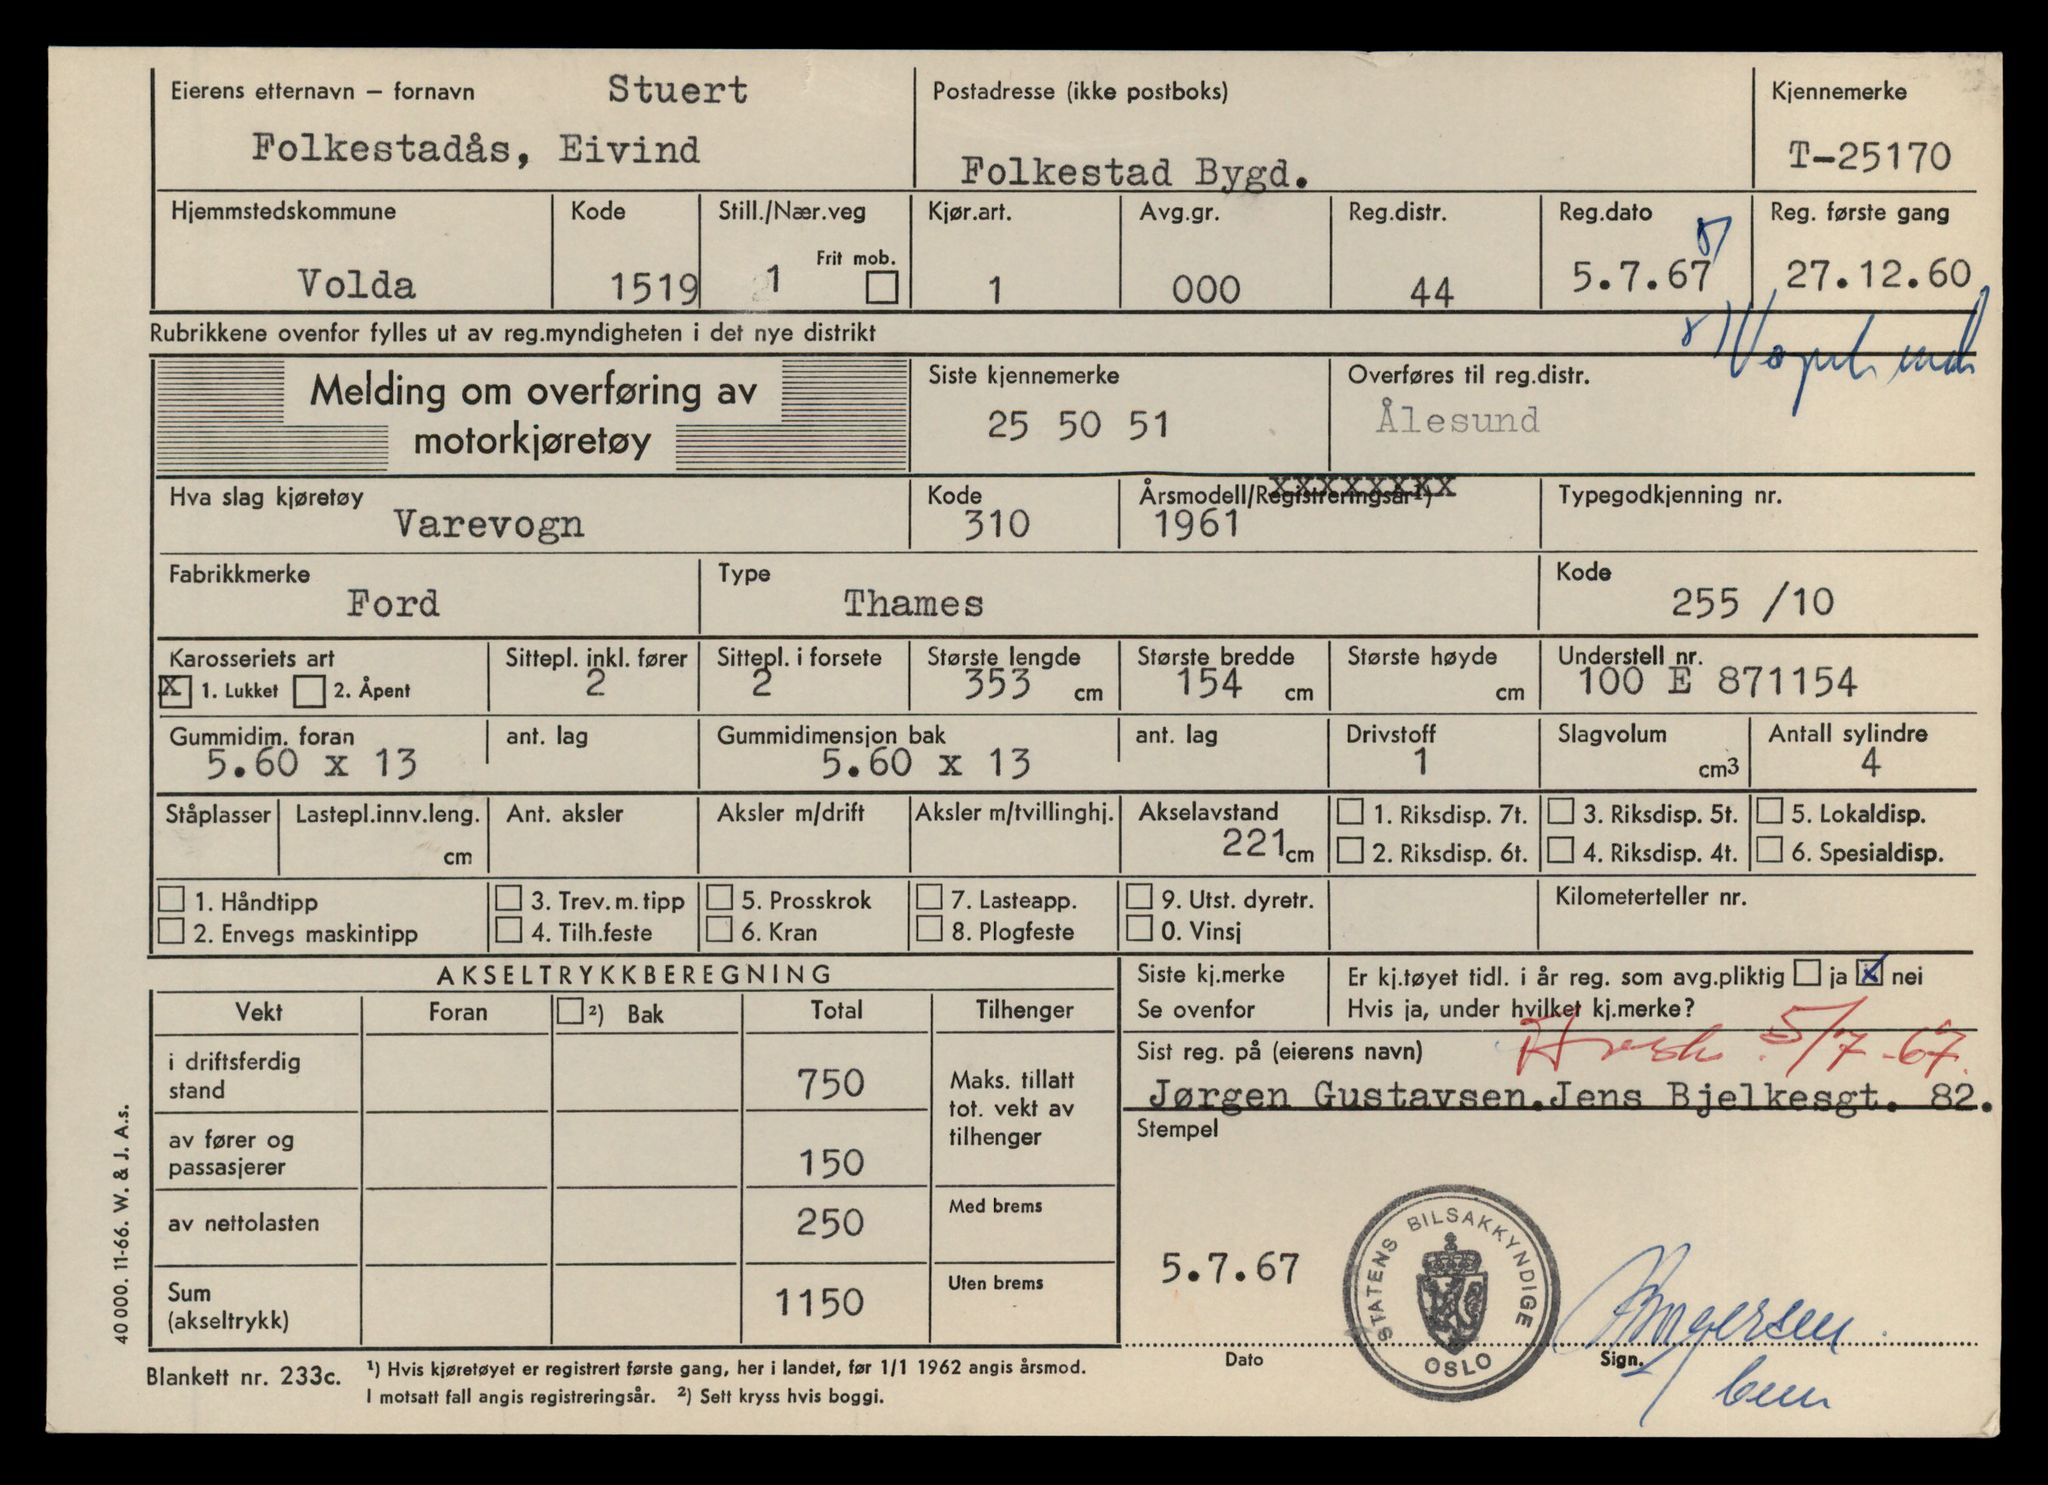 Eierens etternavn – fornavn Stuert
Folkestadås, Eivind
Postadresse (ikke postboks)
Folkestad Bygd.
Kjennemerke
T-25170
Hjemmstedskommune
Volda
Kode
1519
Still./Nær.veg
1 Frit mob.
Kjør.art.
1
Avg.gr.
000
Reg.distr.
44
Reg.dato
5.7.67
Reg. første gang
27.12.60
Rubrikkene ovenfor fylles ut av reg.myndigheten i det nye distrikt
Melding om overføring av
motorkjøretøy
Siste kjennemerke
25 50 51
Overføres til reg.distr.
Ålesund
Hva slag kjøretøy
Varevogn
Kode
310
Årsmodell/Registreringsår¹)
1961
Typegodkjenning nr.
Fabrikkmerke
Ford
Type
Thames
Kode
255 /10
Karosseriets art
X 1. Lukket 2. Åpent
Sittepl. inkl. fører
2
Sittepl. i forsete
2
Største lengde
353 cm
Største bredde
154 cm
Største høyde
cm
Understell nr.
100 E 871154
Gummidim. foran
5.60 x 13
ant. lag
Gummidimensjon bak
5.60 x 13
ant. lag
Drivstoff
1
Slagvolum
cm3
Antall sylindre
4
Ståplasser
Lastepl.innv.leng.
cm
Ant. aksler
Aksler m/drift
Aksler m/tvillinghj.
Akselavstand
221 cm
1. Riksdisp. 7t.
2. Riksdisp. 6t.
3. Riksdisp. 5t.
4. Riksdisp. 4t.
5. Lokaldisp.
6. Spesialdisp.
1. Håndtipp
2. Envegs maskintipp
3. Trev. m. tipp
4. Tilh.feste
5. Prosskrok
6. Kran
7. Lasteapp.
8. Plogfeste
9. Utst. dyretr.
0. Vinsj
Kilometerteller nr.
AKSELTRYKKBEREGNING
Vekt Foran ²) Bak Total Tilhenger
i driftsferdig
stand
750
av fører og
passasjerer
150
av nettolasten
250
Sum
(akseltrykk)
1150
Maks. tillatt
tot. vekt av
tilhenger
Med brems
Uten brems
Siste kj.merke
Se ovenfor
Er kj.tøyet tidl. i år reg. som avg.pliktig ja x nei
Hvis ja, under hvilket kj.merke?
5/7-67.
Sist reg. på (eierens navn)
Jørgen Gustavsen.Jens Bjelkesgt. 82.
Stempel
5.7.67
STATENS BILSAKKYNDIGE
OSLO
Dato
Sign.
40 000. 11-66. W. & J. A.s.
Blankett nr. 233c.
¹) Hvis kjøretøyet er registrert første gang, her i landet, før 1/1 1962 angis årsmod.
I motsatt fall angis registreringsår. ²) Sett kryss hvis boggi.